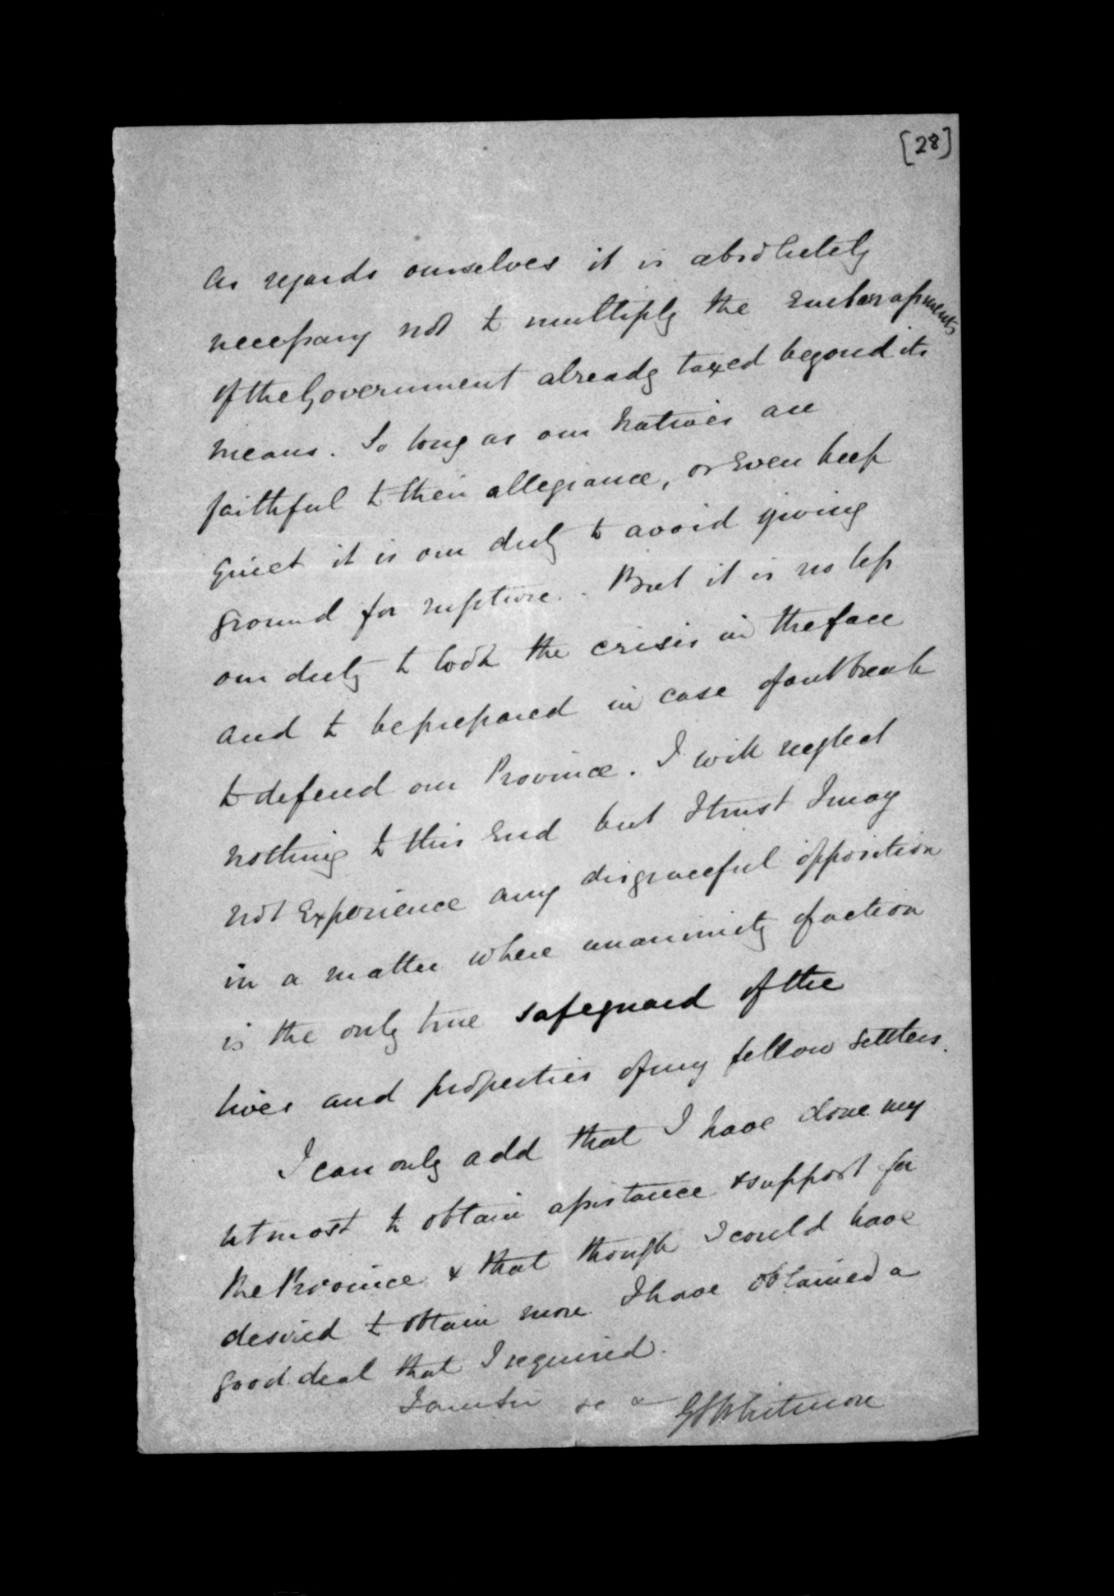 [28]
As regards ourselves it is absolutely
necessary not to multiply the Embarrassments
of the Government already taxed beyond its
means. So long as our Natives are
faithful to their allegiance, or Even keep
quiet it is our duty to avoid giving
ground for rupture. But it is no less
our duty to look the crisis in the face
and to be prepared in case of outbreak
to defend our Province. I will neglect
nothing to this End but I trust I may
not Experience any disgraceful opposition
in a matter where unanimity of action
is the only true safeguard of the
lives and properties of my fellow settlers.
I can only add that I have done my
utmost to obtain assistance & support for
the Province & that though I could have
desired to obtain more I have obtained a
good deal that I required.
I am Sir
GS Whitmore